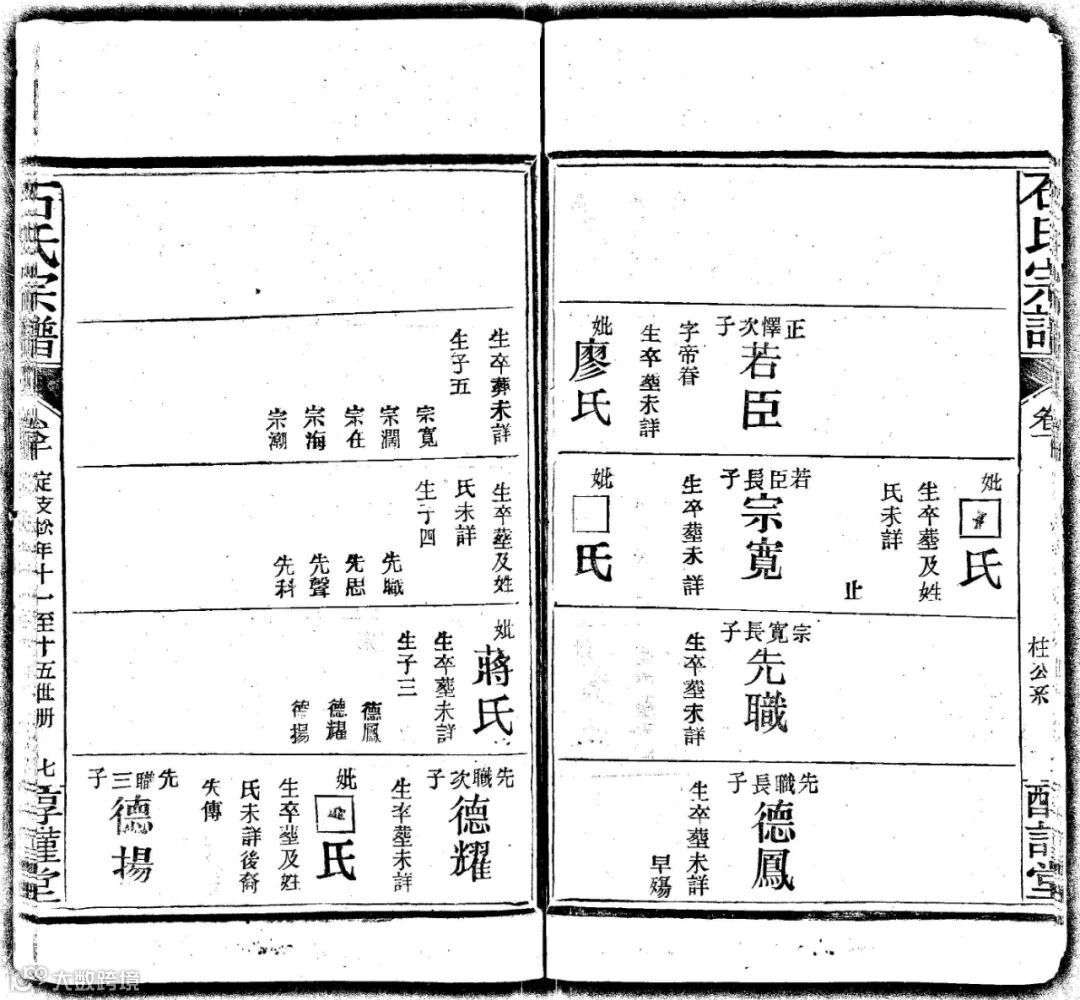 石氏宗譜
卷一
柱公系
正懌次子
若臣
字帝眷
生卒塟未詳
妣
廖氏
妣
氏
生卒塟及姓
氏未詳
止
若臣長子
宗寬
生卒塟未詳
妣
氏
宗寬長子
先職
生卒塟未詳
先職長子
德鳳
生卒塟未詳
早殤
生卒葬未詳
生子五
宗寬
宗濶
宗在
宗海
宗潮
生卒塟及姓
氏未詳
生子四
先職
先思
先聲
先科
妣
蔣氏
生卒塟未詳
生子三
德鳳
德耀
德揚
先職次子
德耀
生卒塟未詳
妣
氏
生卒塟及姓
氏未詳後裔
失傳
先職三子
德揚
石氏宗譜
定支松年十一至十五世册
七
大数跨境